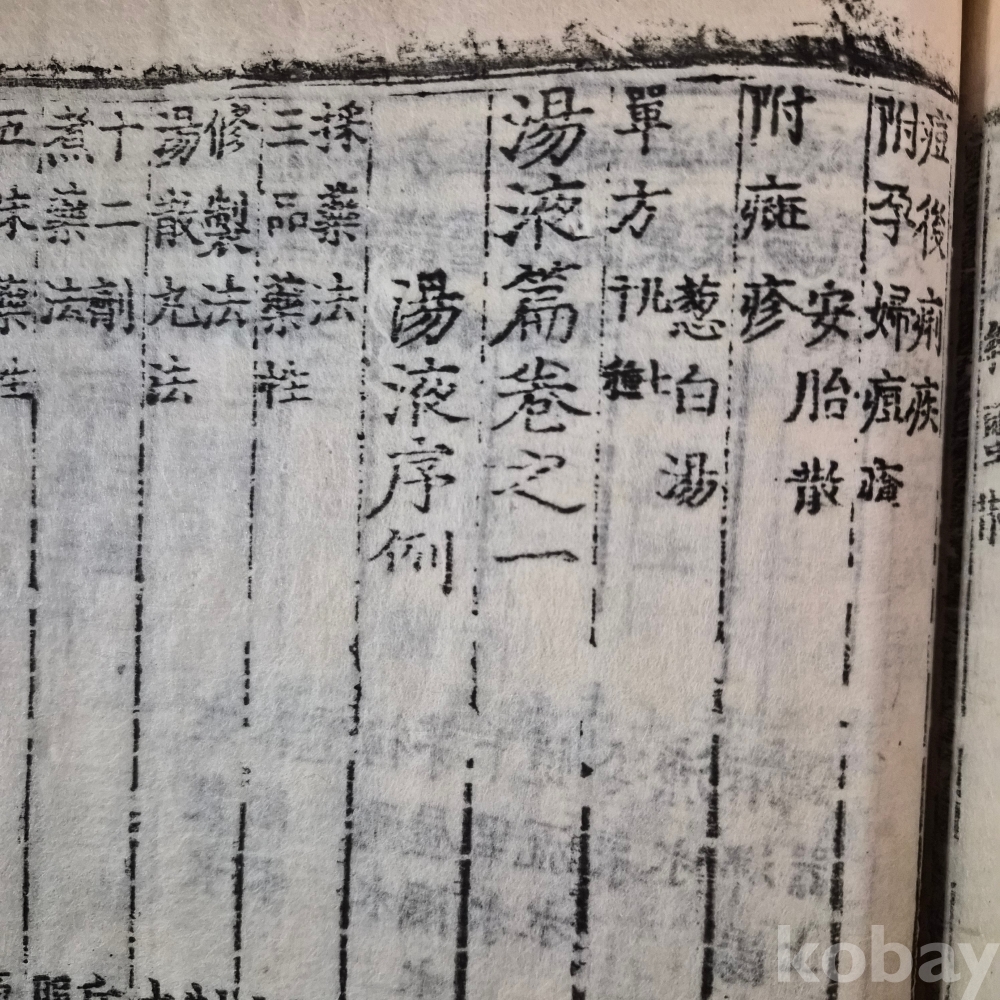 痘後痢疾
附孕婦痘瘡
安胎散
附癍疹
葱白湯
單方 七種
湯液篇卷之一
湯液序例
採藥法
三品藥性
修製法
湯散丸法
十二劑
煮藥法
五味藥性
kobay